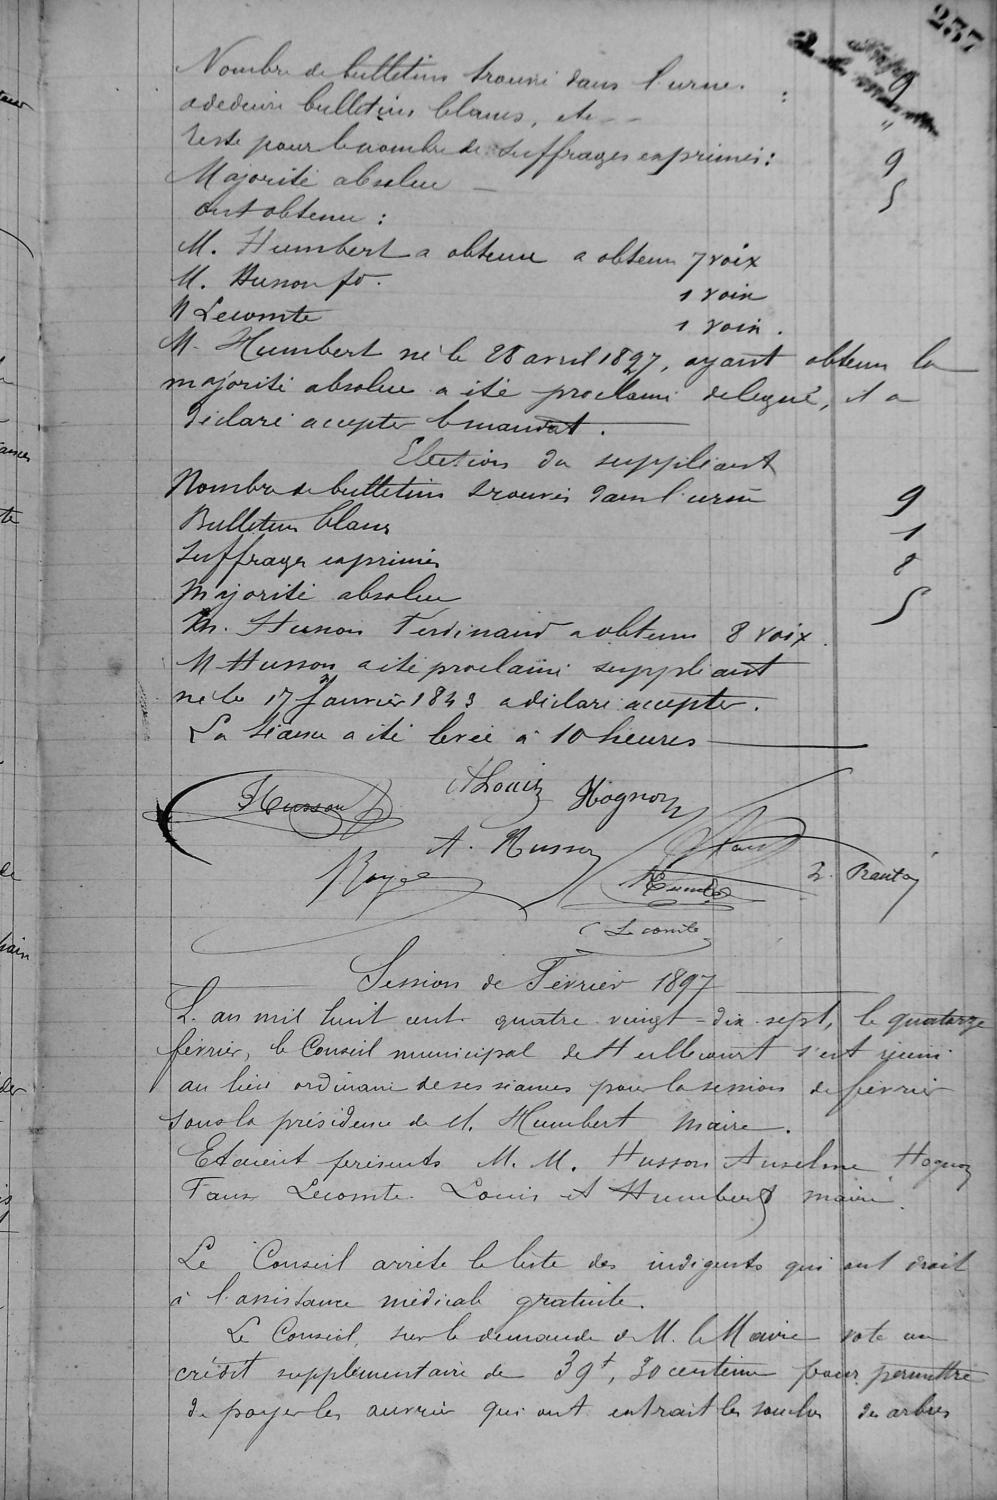 237
Nombre de bulletins trouvé dans l'urne. : 9
a deduire bulletins blancs, etc -- "
reste pour le nombre de suffrages exprimés : 9
Majorité absolue — 5
ont obtenu :
M. Humbert a obtenu a obtenu 7 voix
M. Husson fd. 1 voix
M Lecomte 1 voix.
M. Humbert né le 28 avril 1827, ayant obtenu la
majorité absolue a été proclamé delegué, il a
déclaré accepter le mandat.
Election du suppléant
Nombre de bulletins trouvés dans l'urne 9
Bulletins blancs 1
suffrages exprimés 8
Majorité absolue 5
M. Husson Ferdinand a obtenu 8 voix.
M Husson a été proclamé suppléant
né le 17 Janvier 1843 a déclaré accepter.
La séance a été levée à 10 heures
Husson A Louis Hognon
A. Husson
Royer Humb
Lecomte
Session de Février 1897
L'an mil huit cent quatre vingt-dix-sept, le quatorze
février, le Conseil municipal de Heillecourt s'est réuni
au lieu ordinaire de ses séances pour la session de février
sous la présidence de M. Humbert Maire.
Etaient présents M. M. Husson Anselme Hognon
Faux Lecomte Louis et Humbert maire.
Le Conseil arrête la liste des indigents qui ont droit
à l'assistance médicale gratuite.
Le Conseil, sur la demande de M. le Maire vote un
crédit supplémentaire de 39f, 30 centimes pour permettre
de payer les ouvriers qui ont extrait les souches des arbres